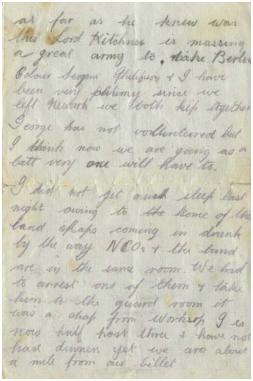 as far as he knew was
this Lord Kitchner is massing
a great army to take Berlin
Colour Sergeant & I have
been very chummy since we
left Newark we both kip together
George has not volunteered but
I think now we are going as a
batt very one will have to.
I did not get much sleep last
night owing to the some of the
band chaps coming in drunk
by the way NCOs & the band
are in the same room. We had
to arrest one of them & take
him to the guard room it
was a chap from Worksop I is
now half past three & have not
had dinner yet we are about
a mile from our billet